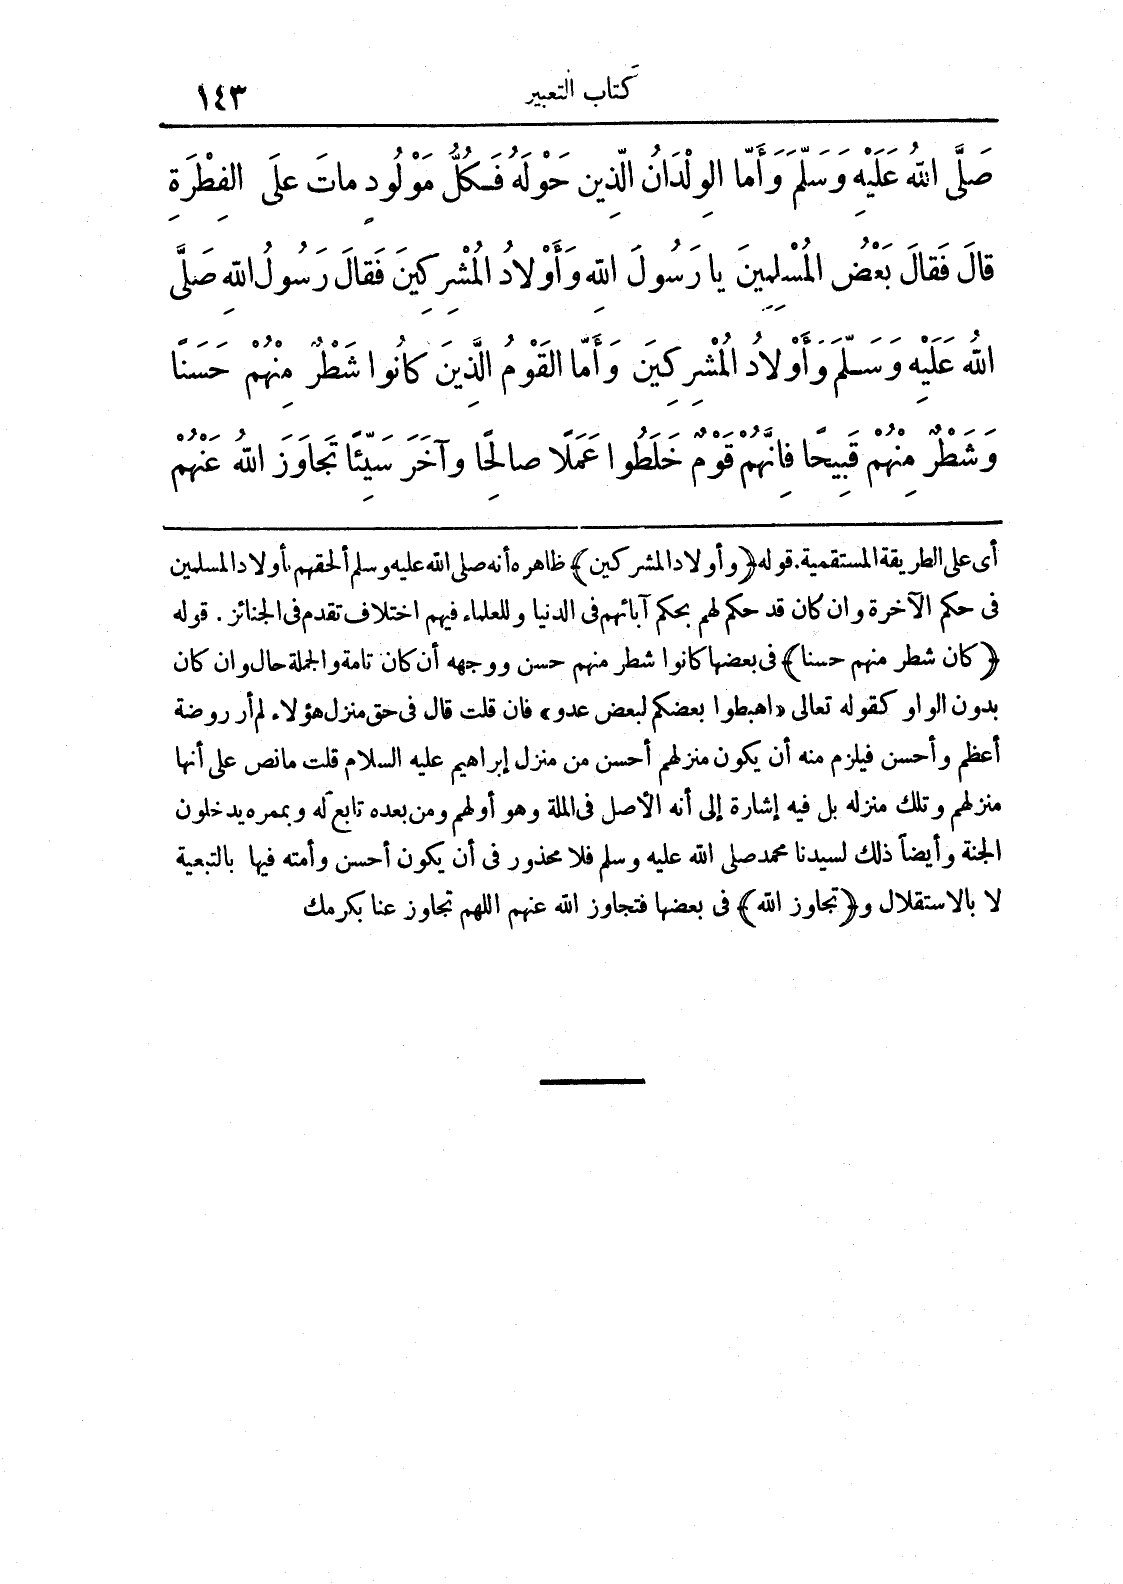 كتاب التعبير ١٤٣
صَلَّى اللهُ عَلَيْهِ وَسَلَّمَ وَأَمَّا الوِلْدَانُ الَّذِين حَوْلَهُ فَكُلُّ مَوْلُودٍ ماتَ علَى الفِطْرَةِ
قالَ فَقالَ بَعْضُ المُسْلِمِينَ يا رَسُولَ اللهِ وَأَوْلادُ المُشْرِكِينَ فَقالَ رَسُولُ اللهِ صَلَّى
اللهُ عَلَيْهِ وَسَلَّمَ وَأَوْلادُ المُشْرِكِينَ وَأَمَّا القَوْمُ الَّذِينَ كانُوا شَطْرٌ مِنْهُمْ حَسَنًا
وَشَطْرٌ مِنْهُمْ قَبِيحًا فإِنَّهُمْ قَوْمٌ خَلَطُوا عَمَلًا صالِحًا وآخَرَ سَيِّئًا تَجاوَزَ اللهُ عَنْهُمْ
أى على الطريقة المستقمية. قوله ﴿وأولاد المشركين﴾ ظاهره أنه صلى الله عليه وسلم ألحقهم بأولاد المسلمين
فى حكم الآخرة وان كان قد حكم لهم بحكم آبائهم فى الدنيا وللعلماء فيهم اختلاف تقدم فى الجنائز . قوله
﴿كان شطر منهم حسنا﴾ فى بعضها كانوا شطر منهم حسن ووجهه أن كان تامة والجملة حال وان كان
بدون الواو كقوله تعالى «اهبطوا بعضكم لبعض عدو» فان قلت قال فى حق منزل هؤلاء لم أر روضة
أعظم وأحسن فيلزم منه أن يكون منزلهم أحسن من منزل إبراهيم عليه السلام قلت مانص على أنها
منزلهم وتلك منزله بل فيه إشارة إلى أنه الأصل فى الملة وهو أولهم ومن بعده تابع له وبممره يدخلون
الجنة وأيضاً ذلك لسيدنا محمد صلى الله عليه وسلم فلا محذور فى أن يكون أحسن وأمته فيها بالتبعية
لا بالاستقلال و﴿تجاوز الله﴾ فى بعضها فتجاوز الله عنهم اللهم تجاوز عنا بكرمك